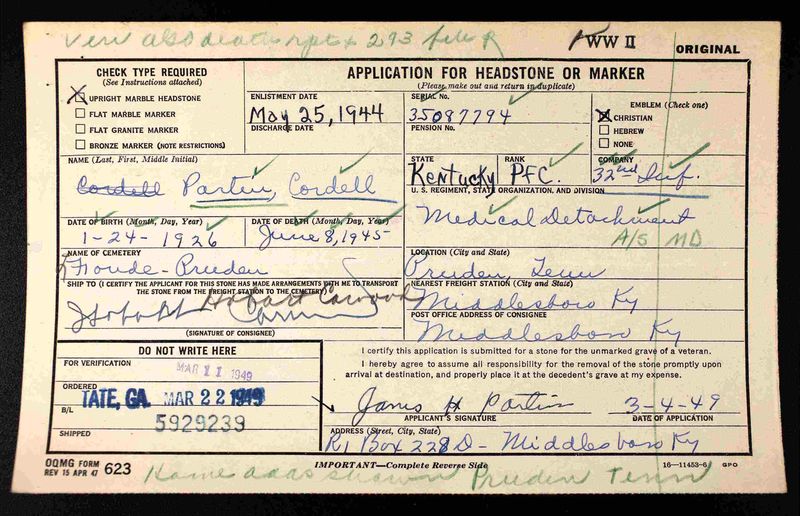 Veri also death rpt + 293 file R
WW II
ORIGINAL
CHECK TYPE REQUIRED
(See Instructions attached)
X UPRIGHT MARBLE HEADSTONE
FLAT MARBLE MARKER
FLAT GRANITE MARKER
BRONZE MARKER (NOTE RESTRICTIONS)
APPLICATION FOR HEADSTONE OR MARKER
(Please make out and return in duplicate)
ENLISTMENT DATE
May 25, 1944
DISCHARGE DATE
SERIAL No.
35087794
PENSION No.
EMBLEM (Check one)
X CHRISTIAN
HEBREW
NONE
NAME (Last, First, Middle Initial)
Cordell Partin, Cordell
STATE
Kentucky
RANK
PFC.
COMPANY
32nd Inf.
U. S. REGIMENT, STATE ORGANIZATION, AND DIVISION
Medical Detachment
A/S MD
DATE OF BIRTH (Month, Day, Year)
1-24-1926
DATE OF DEATH (Month, Day, Year)
June 8, 1945
NAME OF CEMETERY
Fonde-Pruden
LOCATION (City and State)
Pruden, Tenn
SHIP TO (I CERTIFY THE APPLICANT FOR THIS STONE HAS MADE ARRANGEMENTS WITH ME TO TRANSPORT THE STONE FROM THE FREIGHT STATION TO THE CEMETERY)
Hobart Cawood
(SIGNATURE OF CONSIGNEE)
NEAREST FREIGHT STATION (City and State)
Middlesboro Ky
POST OFFICE ADDRESS OF CONSIGNEE
Middlesboro Ky
DO NOT WRITE HERE
FOR VERIFICATION
MAR 11 1949
ORDERED
TATE, GA. MAR 22 1949
B/L
5929239
SHIPPED
I certify this application is submitted for a stone for the unmarked grave of a veteran.
I hereby agree to assume all responsibility for the removal of the stone promptly upon
arrival at destination, and properly place it at the decedent's grave at my expense.
James H Partin
3-4-49
APPLICANT'S SIGNATURE
DATE OF APPLICATION
ADDRESS (Street, City, State)
R1 Box 228D - Middlesboro Ky
OQMG FORM
REV 15 APR 47
623
IMPORTANT—Complete Reverse Side
16—11453-6 GPO
Name adas shown Pruden Tenn